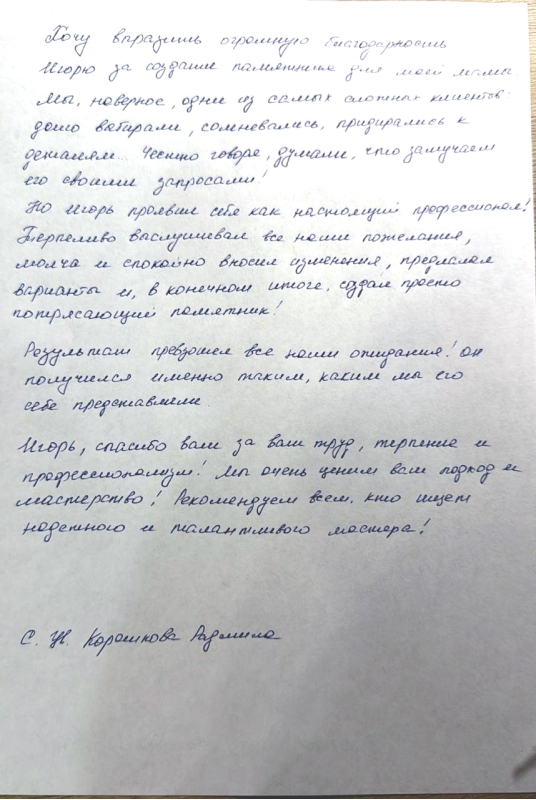 Хочу выразить огромную благодарность
Игорю за создание памятника для моей мамы
Мы, наверное, одни из самых сложных клиентов:
долго выбирали, сомневались, придирались к
деталям... Честно говоря, думали, что замучаем
его своими запросами!
Но Игорь проявил себя как настоящий профессионал!
Терпеливо выслушивал все наши пожелания,
молча и спокойно вносил изменения, предлагал
варианты и, в конечном итоге, создал просто
потрясающий памятник!
Результат превзошел все наши ожидания! Он
получился именно таким, каким мы его
себе представляли
Игорь, спасибо вам за ваш труд, терпение и
профессионализм! Мы очень ценим ваш подход и
мастерство! Рекомендуем всем, кто ищет
надежного и талантливого мастера!
С. Ув. Радмила